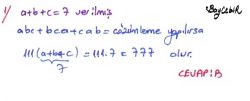 1) a+b+c=7 verilmiş
abc+bca+cab=çözümleme yapılırsa
111(a+b+c)=111.7=777 olur.
7
CEVAP:B